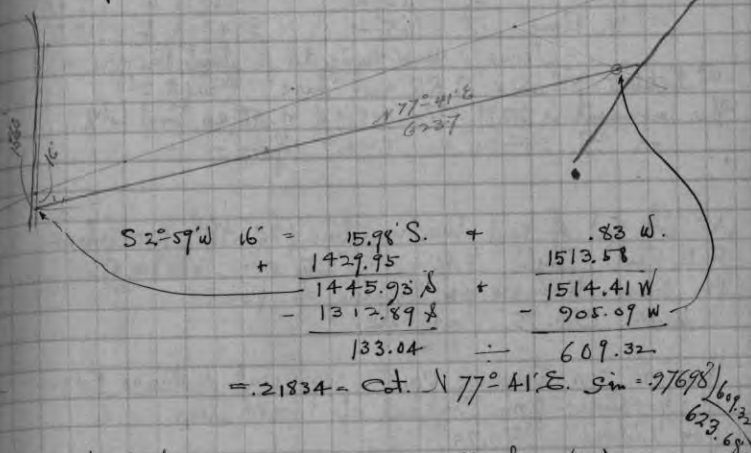 N 77° 41' E
623.7
16'
S 2°-59' W 16' = 15.98' S. + .83 W.
+ 1429.95 1513.58
1445.93 S + 1514.41 W
- 1312.89 S - 905.09 W
133.04 ÷ 609.32
= .21834 = Cot. N 77° 41' E. Sin = .97698)609.32
623.68